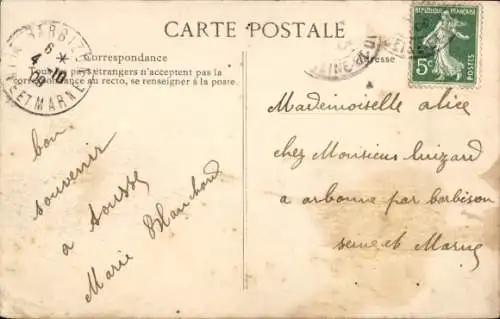 CARTE POSTALE
Correspondance
Tous les pays étrangers n'acceptent pas la
correspondance au recto, se renseigner à la poste.
bon
souvenir
a Sousse
Marie Blanchard
BARBIZ
6 *
4 -10
09
NE ET MARNE
Adresse
SEINE
REPUBLIQUE FRANÇAISE
5c
POSTES
Mademoiselle alice
chez Monsieur
a arbonne par barbison
seine et Marne